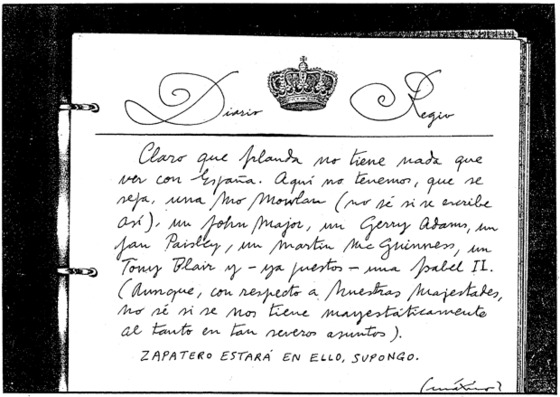 Diario Regio
Claro que Irlanda no tiene nada que
ver con España. Aquí no tenemos, que se
sepa, una Mo Mowlan (no sé si se escribe
así), un John Major, un Gerry Adams, un
Jan Paisley, un Martin McGuinness, un
Tony Blair y - ya puestos - una Isabel II.
(Aunque, con respecto a Nuestras Majestades,
no sé si se nos tiene mayestáticamente
al tanto en tan severos asuntos).
ZAPATERO ESTARÁ EN ELLO, SUPONGO.
máximo